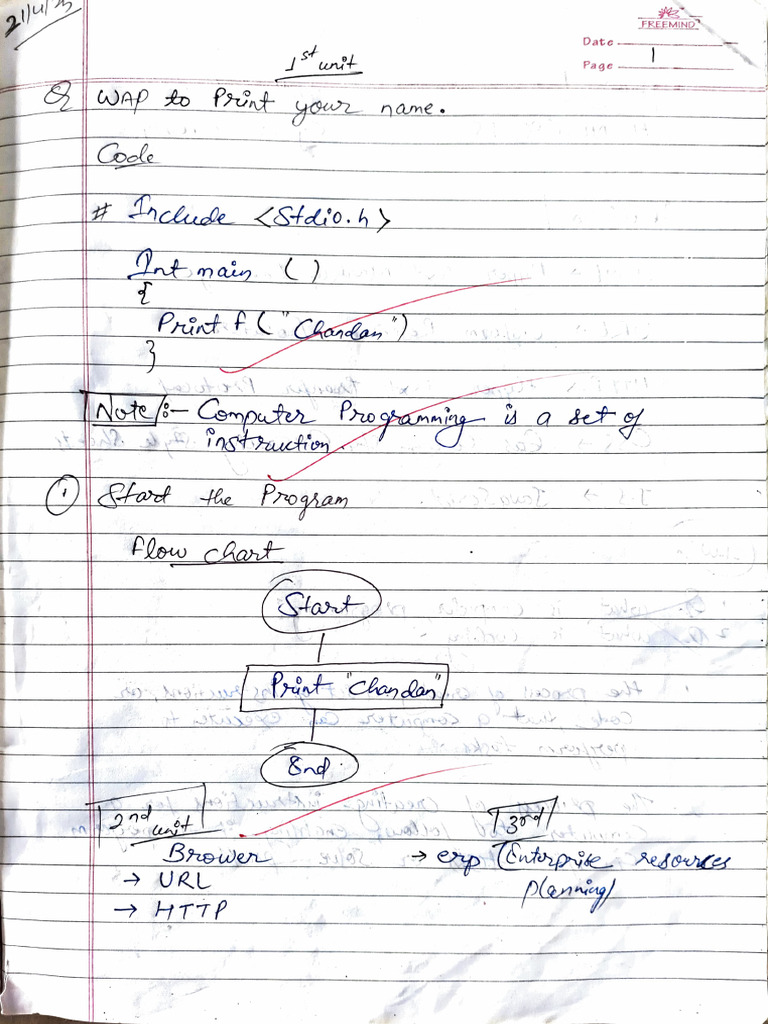 21/4/25
FREEMIND
Date
Page 1
1st unit
Q WAP to Print your name.
Code
# Include <Stdio.h>
Int main ()
{
Printf ("Chandan")
}
Note :- Computer Programming is a set of
instruction.
1 Start the Program
Flow chart
Start
Print "Chandan"
End
2nd unit
3rd
Brower
→ erp (Enterprise resources
→ URL
planning)
→ HTTP